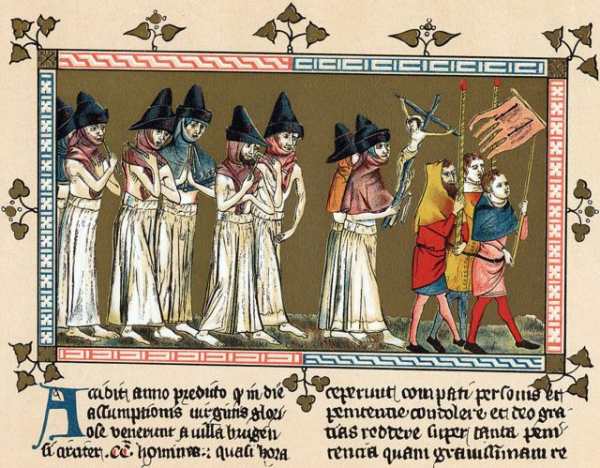 Accidit anno predicto q in die
assumptionis virginis glori
ose venerunt a villa brugen
si circiter .CC. homines quasi hora
ceperunt compati personis et
penitentie condolere et deo gra
tias reddere super tanta peni
tencia quam gravissimam re